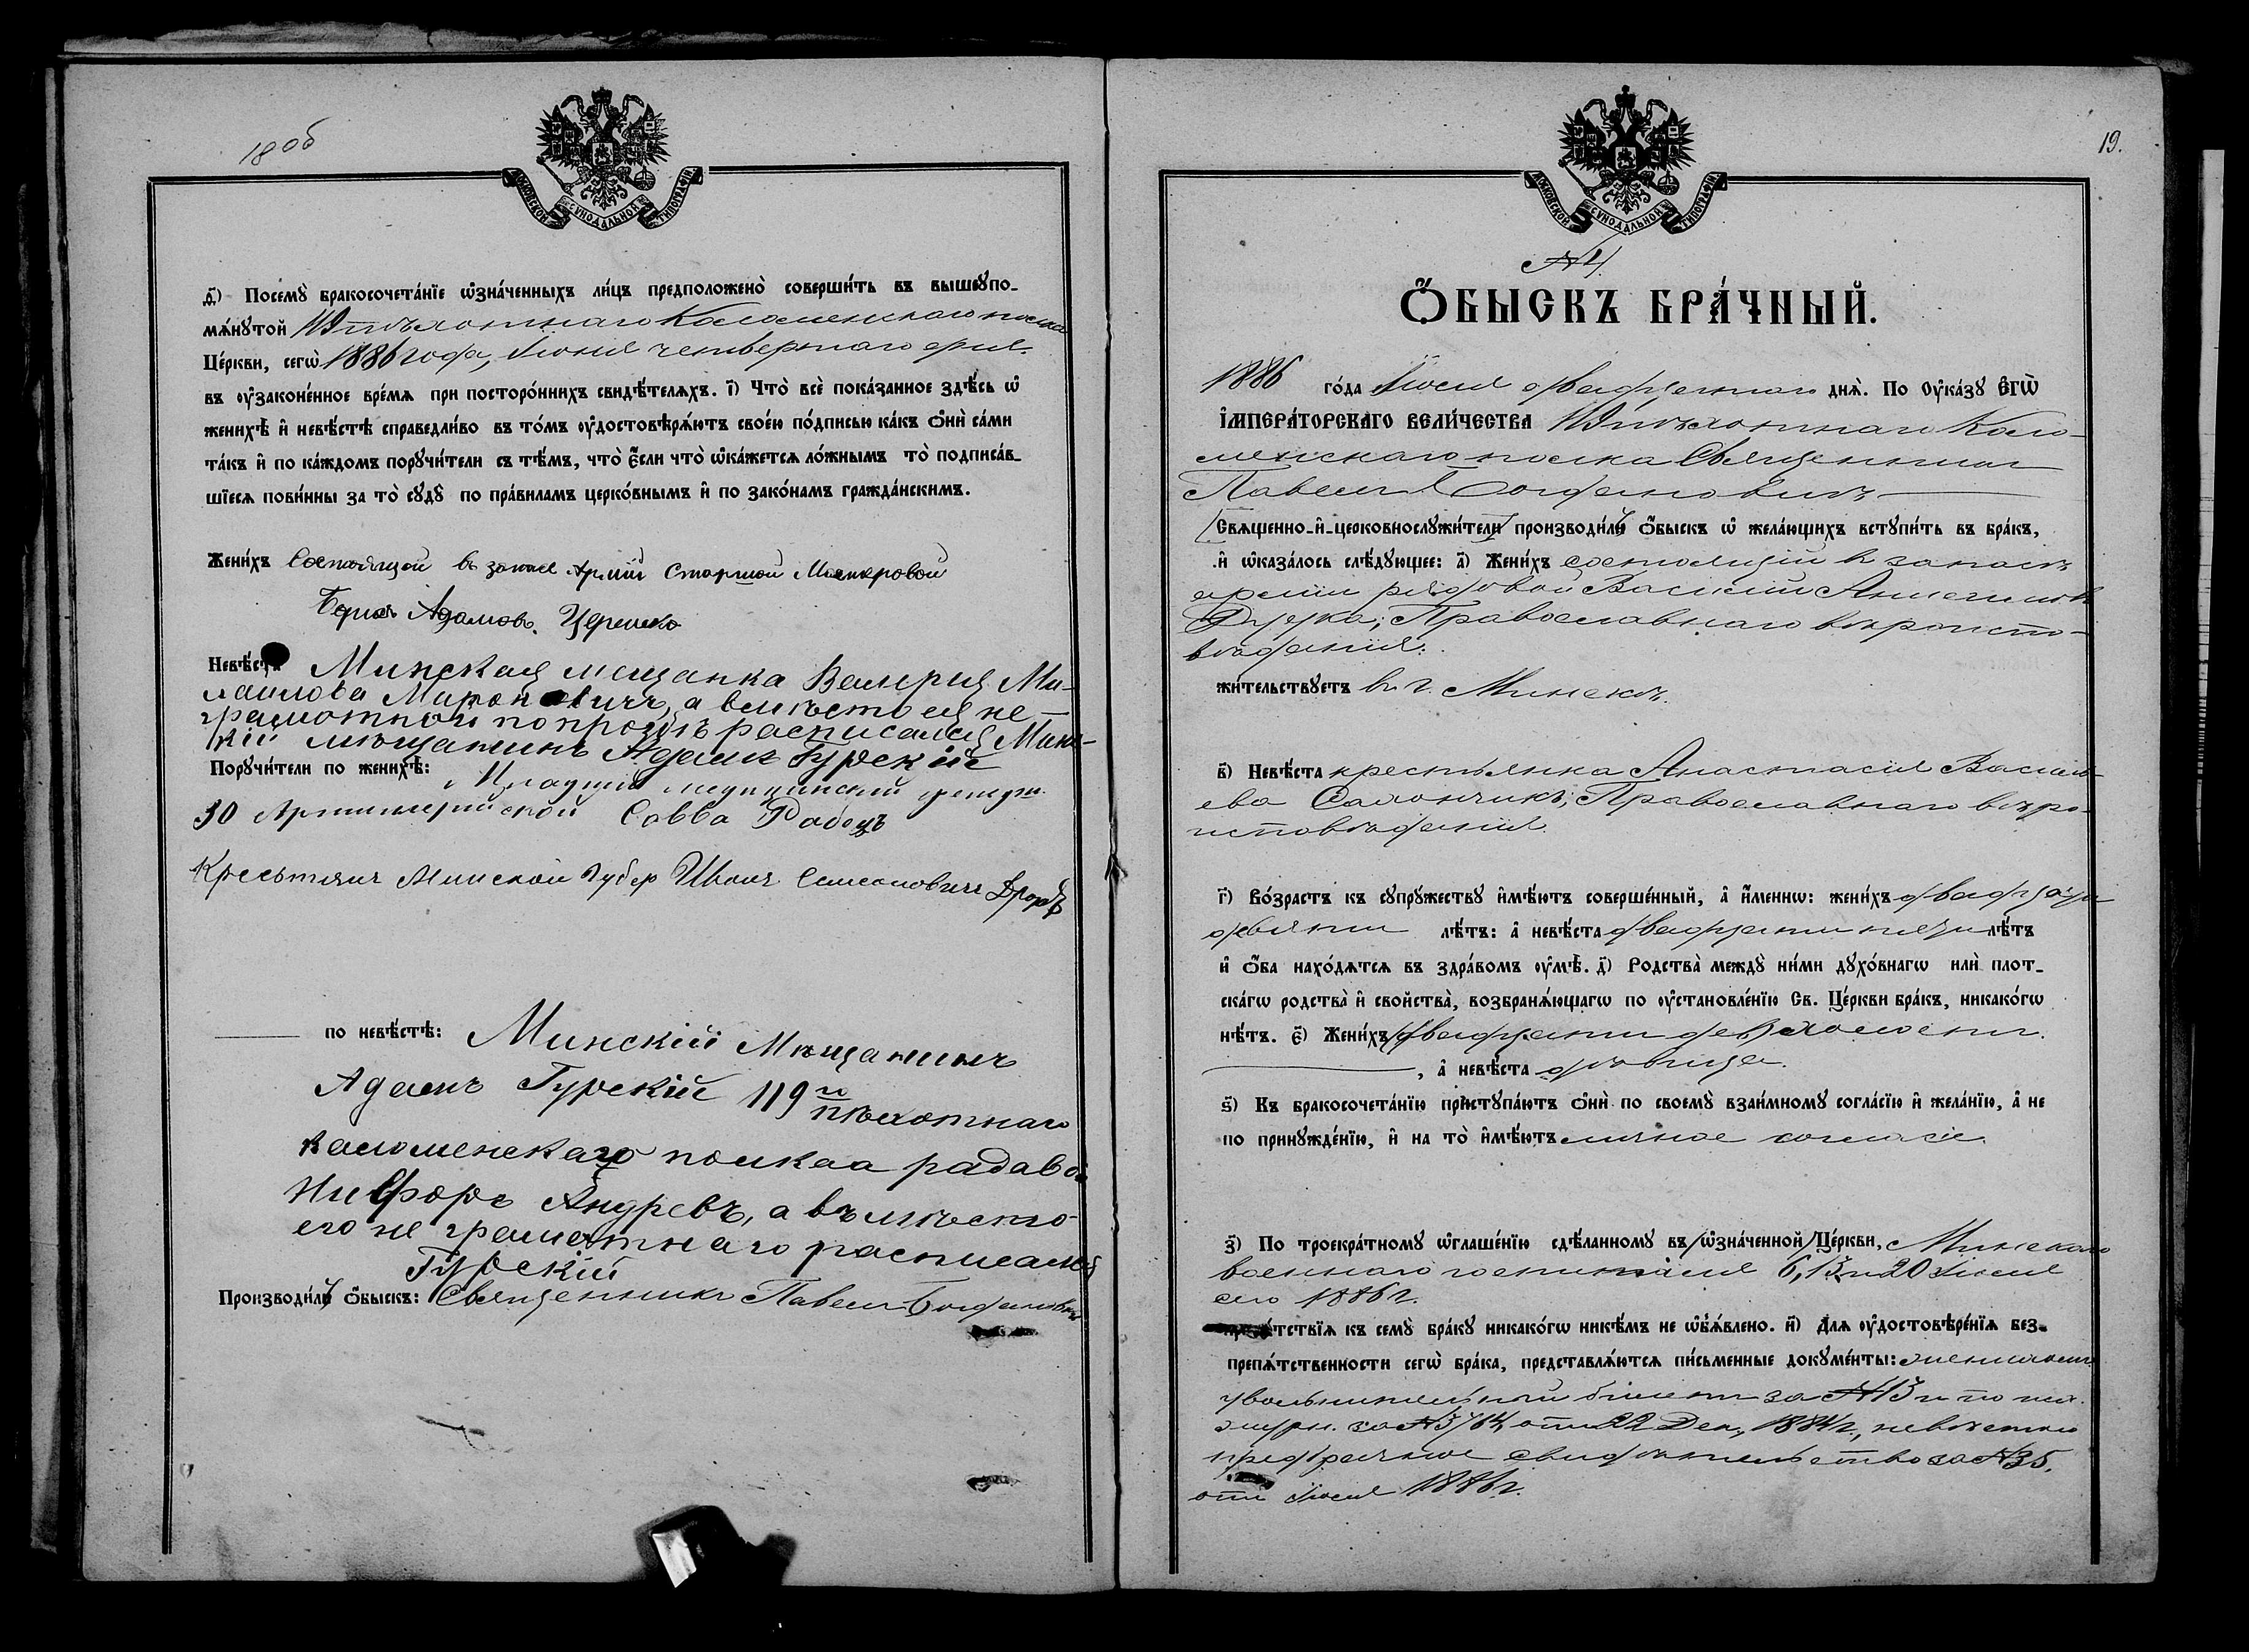 18 об
МОСКОВСКОЙ СѴНОДАЛЬНОЙ ТИПОГРАФІИ
Посемꙋ̀ бракосочета́нїе ѡ҆зна́ченныхъ ли́цъ предположено̀ соверши́ть въ вышеꙋпо-
мѧ́нꙋтой 119 пѣхотнаго Коломенскаго полка
Це́ркви, сегѡ̀ 1886 года, Іюня четвертаго дня.
въ ᲂу҆законе́нное вре́мѧ при посторо́ннихъ свидѣ́телѧхъ. і҃) Что̀ всѐ пока́занное здѣ́сь ѡ҆
женихѣ̀ и҆ невѣ́стѣ справедли́во въ то́мъ ᲂу҆достовѣрѧ́ютъ свое́ю по́дписью ка́къ ѻ҆нѝ са́ми
та́къ и҆ по ка́ждомъ порꙋчи́тели съ тѣ́мъ, что̀ є҆́сли что̀ ѡ҆ка́жетсѧ ло́жнымъ то̀ подписа́в-
шїесѧ пови́нны за то̀ сꙋдꙋ̀ по пра́виламъ церко́внымъ и҆ по зако́намъ гражда́нскимъ.
Жени́хъ Состоящой въ запасе Арміи Старшой Мастеровой
Борис Адамовъ
Невѣ́ста Минская мещанка Валерия Ми-
хаилова Миронович, а вместо ея не-
грамотной по прозьбѣ расписался Минс-
кій мѣщанинъ Адамъ Гурскій
Порꙋчи́тели по женихѣ̀: Младшій медицинский фельдш.
30 Артиллерийской Савва
Крестьянин Минской Губер Иван Симеонович
по невѣ́стѣ: Минскій Мѣщанинъ
Адамъ Гурскій 119го пѣхотнаго
Каломенскаго полкаа радавой
Андревъ, а въ мѣсто
его не грамотнаго расписался
Гурскій
Производи́лъ ѻ҆́быскъ: Священникъ Павелъ Богдановичъ
19.
МОСКОВСКОЙ СѴНОДАЛЬНОЙ ТИПОГРАФІИ
№ 4.
Ѻ҆́БЫСКЪ БРА́ЧНЫЙ.
1886 го́да Іюля двадцатаго днѧ̀. По Оу҆ка́зꙋ Є҆ГѠ̀
І҆МПЕРА́ТОРСКАГО ВЕЛИ́ЧЕСТВА 119 пѣхотнаго Коло-
менскаго полка Священник
Павелъ Богдановичъ
Свѧщенно-и҆-церковнослꙋжи́тели производи́лъ ѻ҆́быскъ ѡ҆ жела́ющихъ встꙋпи́ть въ бра́къ,
и҆ ѡ҆каза́лось слѣ́дꙋющее: а҃) Жени́хъ состоящій в запасѣ
арміи рядовой Василій
Православнаго вѣроиспо-
вѣданія.
жи́тельствꙋетъ въ г. Минскѣ.
в҃) Невѣ́ста крестьянка Анастасія Василь-
ева Православнаго вѣро-
исповѣданія.
г҃) Во́зрастъ къ сꙋпрꙋ́жествꙋ и҆мѣ́ютъ соверше́нный, а҆ и҆́меннѡ: жени́хъ двадцати
девяти лѣ́тъ: а҆ невѣ́ста двадцати пяти лѣ́тъ
и҆ ѻ҆́ба нахо́дѧтсѧ въ здра́вомъ ᲂу҆мѣ̀. д҃) Родства̀ междꙋ̀ ни́ми дꙋхо́внагѡ и҆лѝ плот-
ска́гѡ родства̀ и҆ сво́йства̀, возбранѧ́ющагѡ по ᲂу҆становле́нїю Св. Це́ркви бра́къ, никако́гѡ
нѣ́тъ. є҃) Жени́хъ холостъ.
, а҆ невѣ́ста дѣвица.
ѕ҃) Къ бракосочета́нїю пристꙋпа́ютъ ѻ҆нѝ по своемꙋ̀ взаи́мномꙋ согла́сїю и҆ жела́нїю, а҆ не
по принꙋжде́нїю, и҆ на то̀ и҆мѣ́ютъ личное согласіе.
з҃) По троекра́тномꙋ ѡ҆глаше́нїю сдѣ́ланномꙋ въ ѡ҆зна́ченной Це́ркви, Минскаго
военнаго госпиталя 6, 13 и 20 Іюля
сего 1886 г.
препѧ́тствїѧ къ семꙋ̀ бра́кꙋ никако́гѡ никѣ́мъ не ѡ҆б̾ѧ́влено. и҃) Для ᲂу҆достовѣре́нїѧ без-
препѧ́тственности сегѡ̀ бра́ка, представлѧ́ютсѧ пи́сьменные докꙋме́нты: женихомъ
увольнительный билетъ за № 13 и по
журн. за № 3764, отъ 22 Дек. 1884 г., невѣстою
предбрачное свидѣтельство за № 35.
отъ Іюля 1886 г.